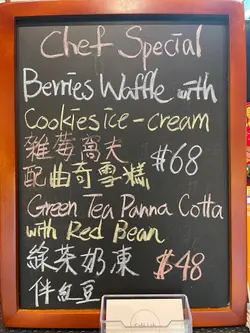 Chef Special
Berries Waffle with
Cookies ice-cream
雜莓窩夫
$68
配曲奇雪糕
Green Tea Panna Cotta
with Red Bean
綠茶奶凍
$48
伴紅豆